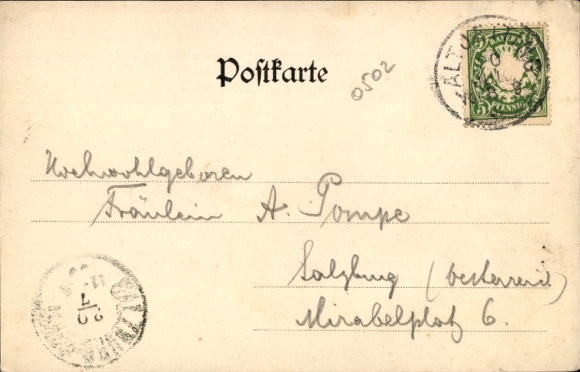 Postkarte
0502
BAYERN
5 5
PFENNIG
ALTU
Hochwohlgeboren
Fräulein A. Pompe
Salzburg (Oesterreich)
Mirabellplatz 6.